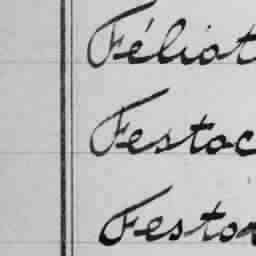 Féliot
Festoc
Festor